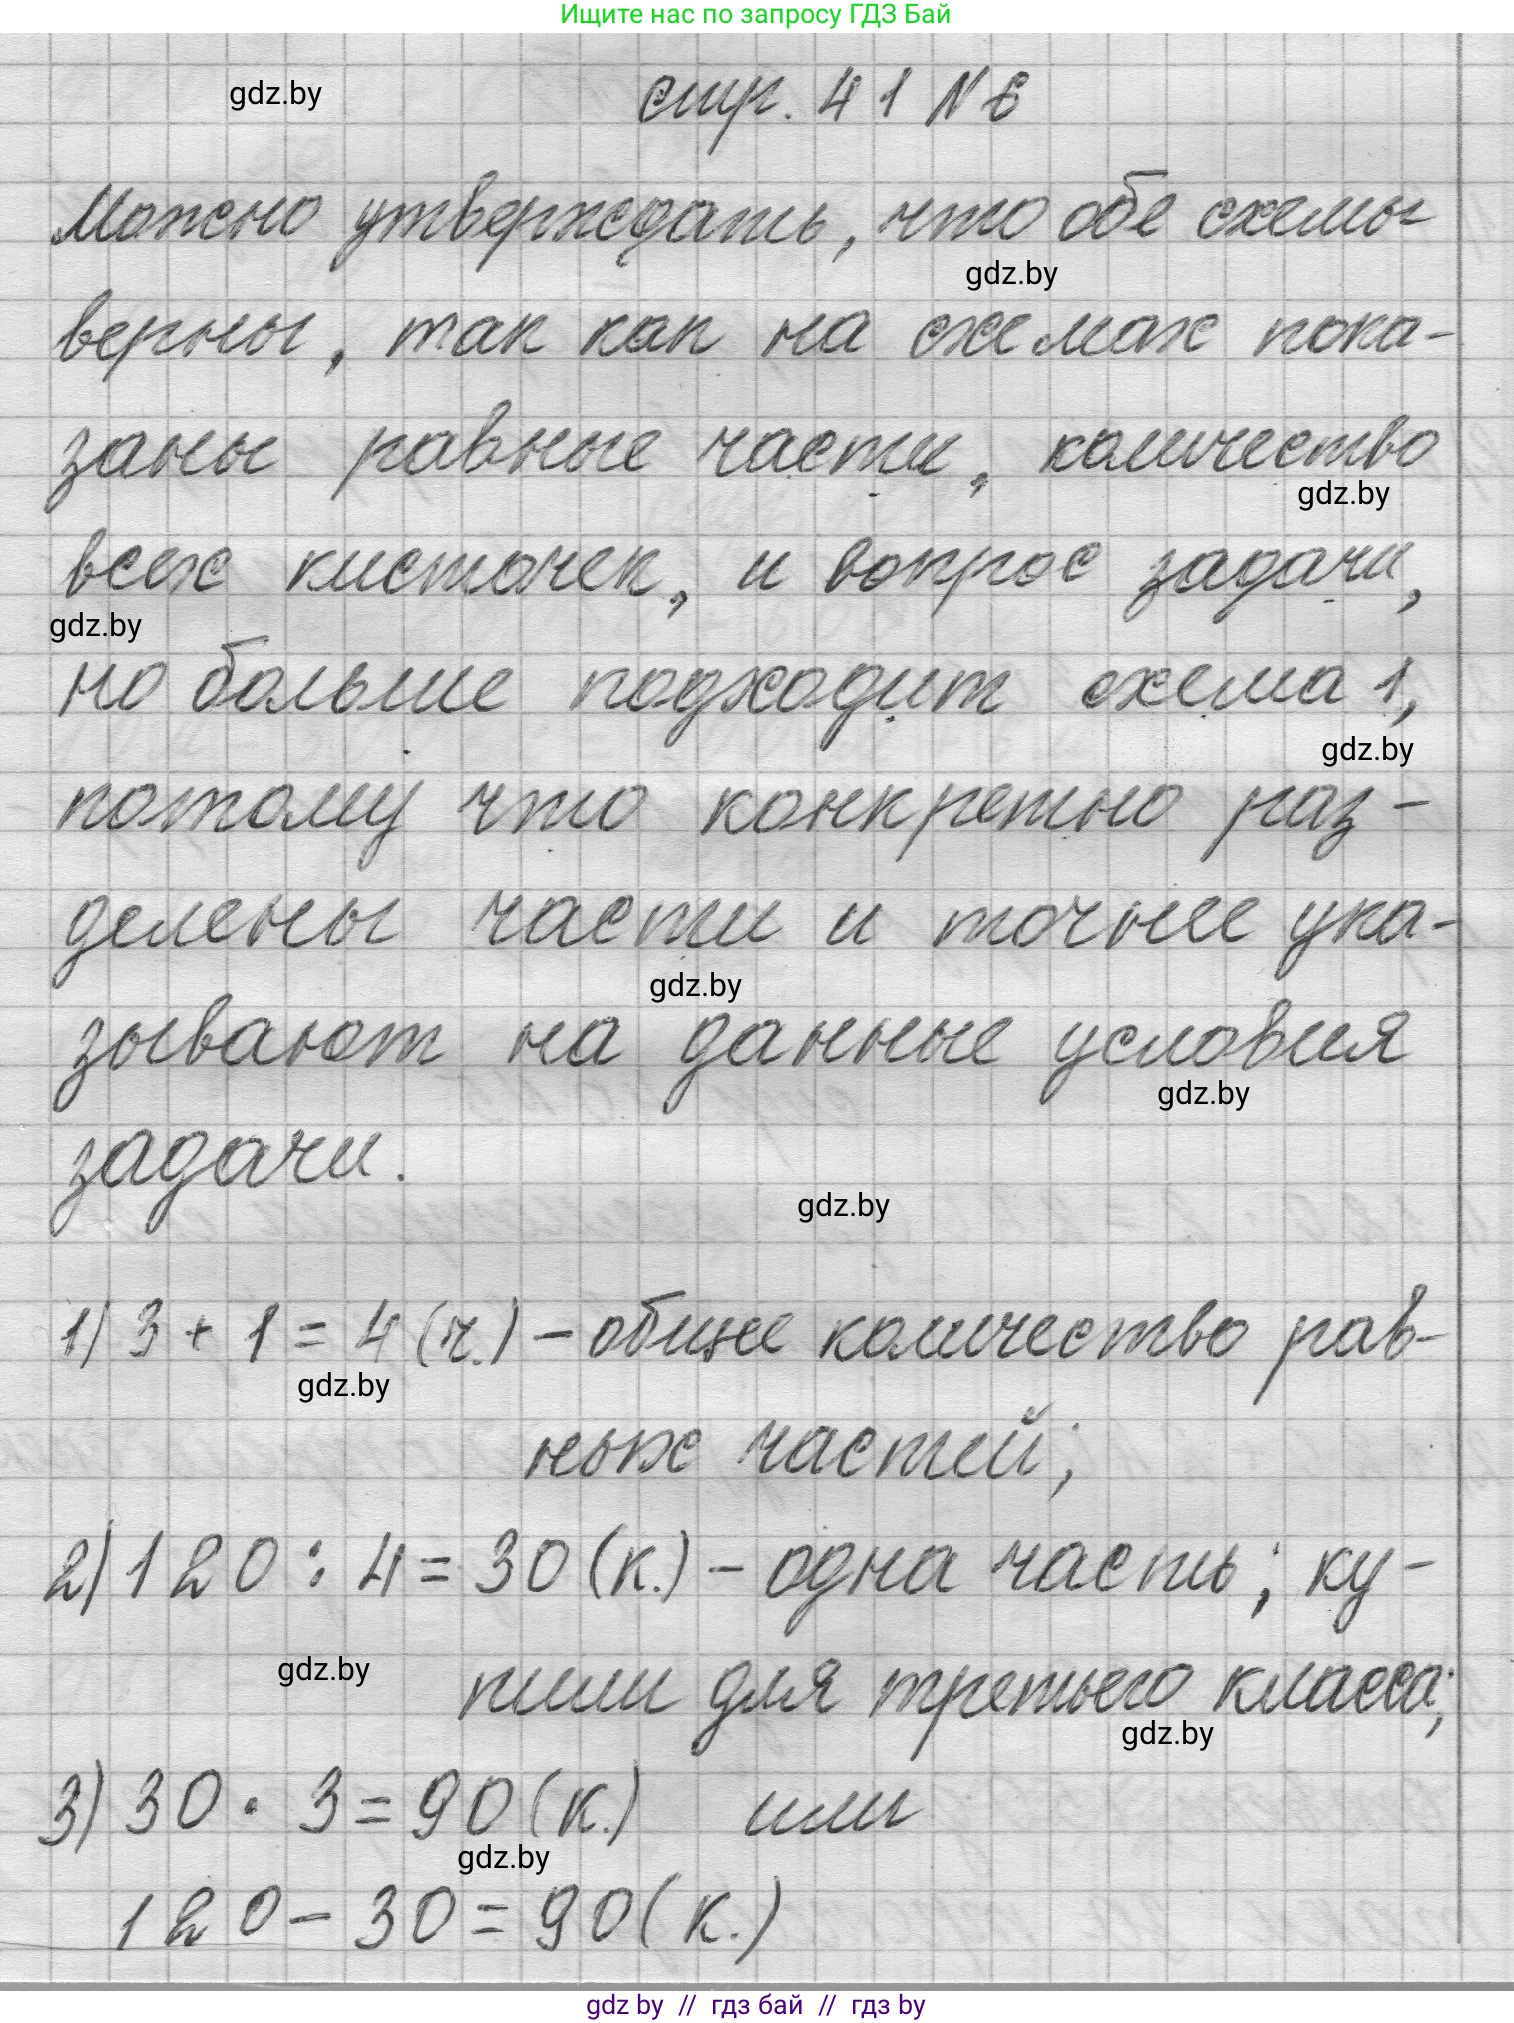 Ищите нас по запросу ГДЗ Бай
gdz.by
стр. 41 N 6
Можно утверждать, что обе схемы
gdz.by
верны, так как на схемах пока-
заны равные части, количество
gdz.by
всех кисточек, и вопрос задачи,
gdz.by
но больше подходит схема 1,
gdz.by
потому что конкретно раз-
делены части и точнее ука-
gdz.by
зывают на данные условия
gdz.by
задачи.
gdz.by
1) 3 + 1 = 4 (ч.) - общее количество рав-
gdz.by
ных частей;
2) 120 : 4 = 30 (к.) - одна часть; ку-
gdz.by
пили для третьего класса;
gdz.by
3) 30 · 3 = 90 (к.) или
gdz.by
120 - 30 = 90 (к.)
gdz by // гдз бай // гдз by